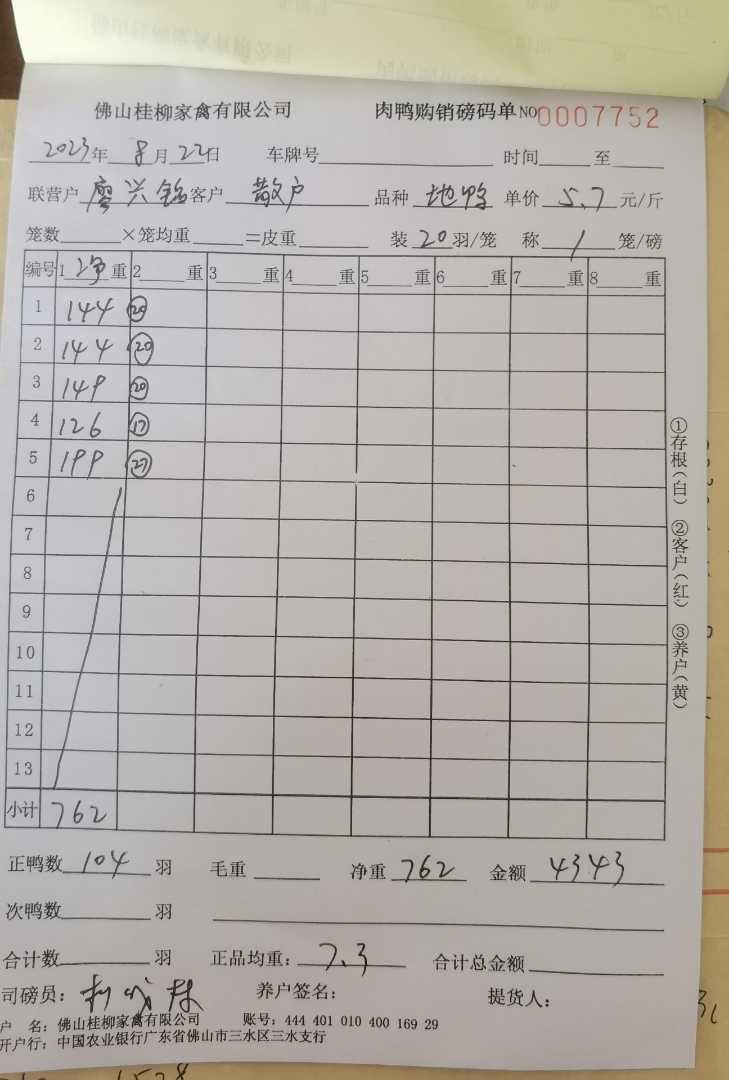 佛山桂柳家禽有限公司 肉鸭购销磅码单 NO 0007752
2023年 8月 22日 车牌号 时间 至
联营户 廖兴铭 客户 散户 品种 地鸭 单价 5.7 元/斤
笼数 ×笼均重 =皮重 装 20 羽/笼 称 1 笼/磅
编号 1 净 重 2 重 3 重 4 重 5 重 6 重 7 重 8 重
1 144 20
2 144 20
3 149 20
4 126 17
5 199 27
6
7
8
9
10
11
12
13
小计 762
①存根(白) ②客户(红) ③养户(黄)
正鸭数 104 羽 毛重 净重 762 金额 4343
次鸭数 羽
合计数 羽 正品均重: 7.3 合计总金额
司磅员: 养户签名: 提货人:
户 名: 佛山桂柳家禽有限公司 账号: 444 401 010 400 169 29
开户行: 中国农业银行广东省佛山市三水区三水支行